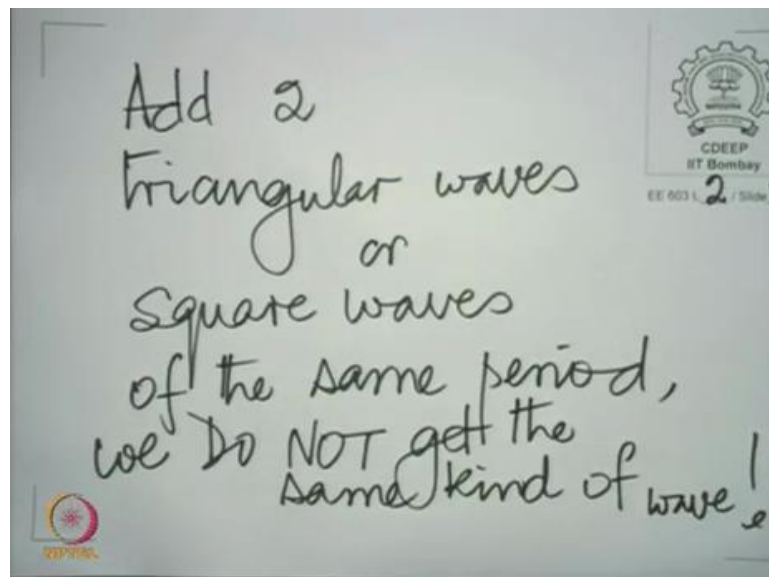 Add 2
triangular waves
or
square waves
of the same period,
we DO NOT get the
same kind of wave!
CDEEP
IIT Bombay
EE 603 L 2 / Slide
NPTEL